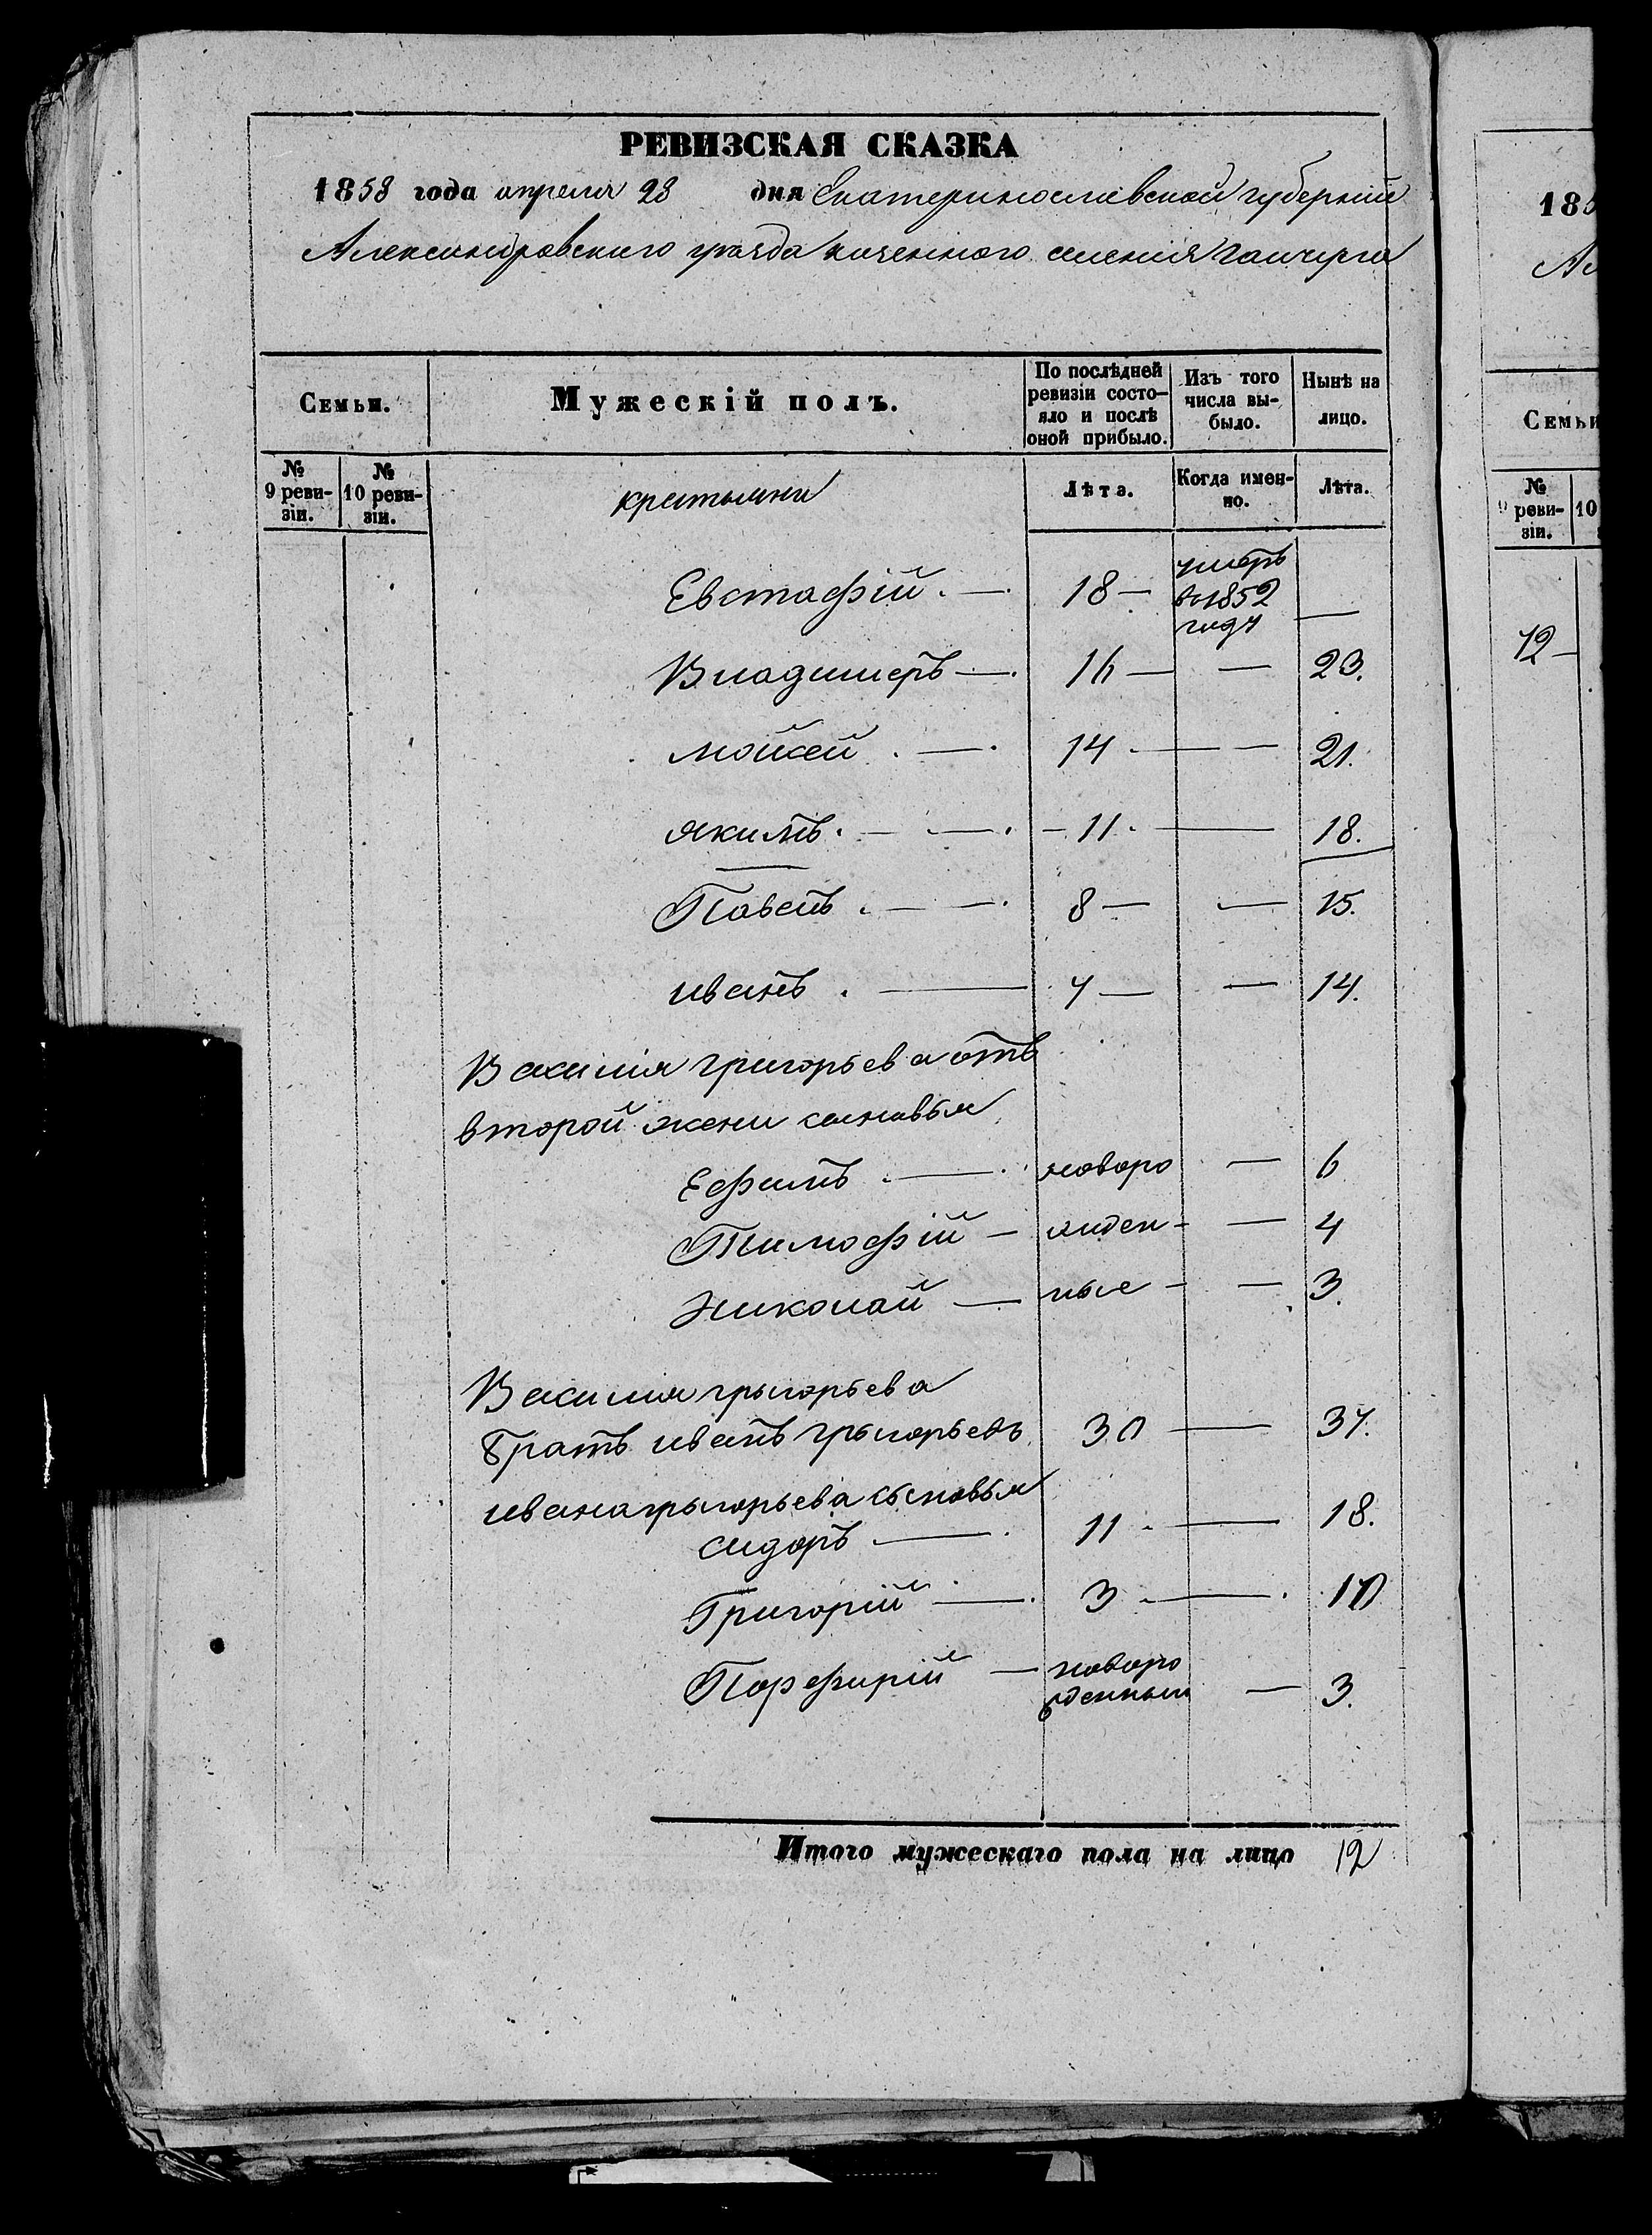 РЕВИЗСКАЯ СКАЗКА
1858 года апреля 28 дня Екатеринославской губерніи
Александровского уезда казенного селенія Гайчура
Семьи.
Мужескій полъ.
По послѣдней ревизіи состояло и послѣ оной прибыло.
Изъ того числа выбыло.
Нынѣ на лицо.
№ 9 ревизіи.
№ 10 ревизіи.
крестьяни
Лѣта.
Когда именно.
Лѣта.
Евстафій . — 18 — умеръ в 1852 году —
Владимеръ — 16 — — 23.
мойсей . — 14 — — 21.
якимъ . — — 11 — 18.
Павелъ . — — 8 — — 15.
иванъ . — 7 — — 14.
Василія григорьева отъ
второй жени сыновья
Ефимъ . — новоро — 6
Тимофій — жден- — 4
Николай — ные - — 3.
Василия грыгорьева
Братъ иванъ грыгорьевъ 30 — 37.
ивана грыгорьева сыновья
сидоръ — 11 — 18.
Григорій — 3 — 10
Порфирій — новоро жденный — 3.
Итого мужескаго пола на лицо 12
185
Ал
Семьи
№ 9 ревизіи.
10
12 —